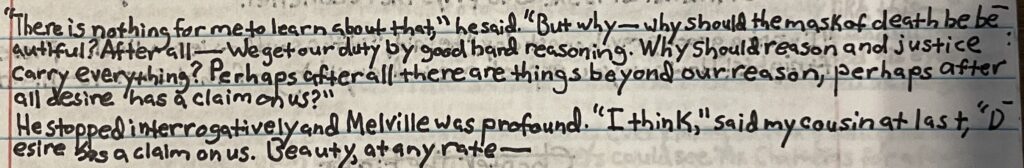 "There is nothing for me to learn about that," he said. "But why—why should the mask of death be be-
autiful? After all—We get our duty by good hard reasoning. Why should reason and justice
carry everything? Perhaps after all there are things beyond our reason, perhaps after
all desire has a claim on us?"
He stopped interrogatively and Melville was profound. "I think," said my cousin at last, "D-
esire has a claim on us. Beauty, at any rate—